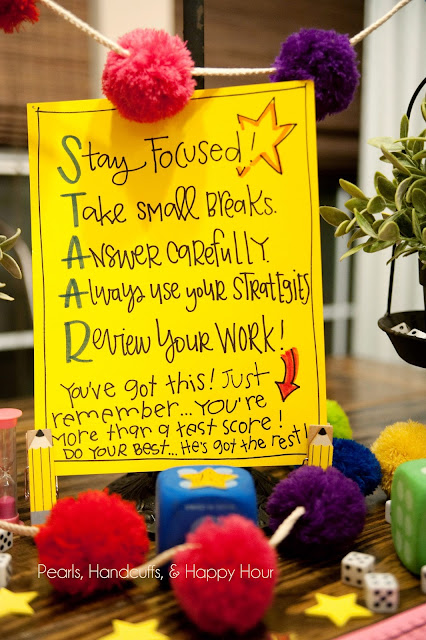 Stay Focused!
Take small breaks.
Answer carefully.
Always use your strategies
Review your work!
You've got this! Just
remember... you're
more than a test score!
Do your best... He's got the rest!
Pearls, Handcuffs, & Happy Hour